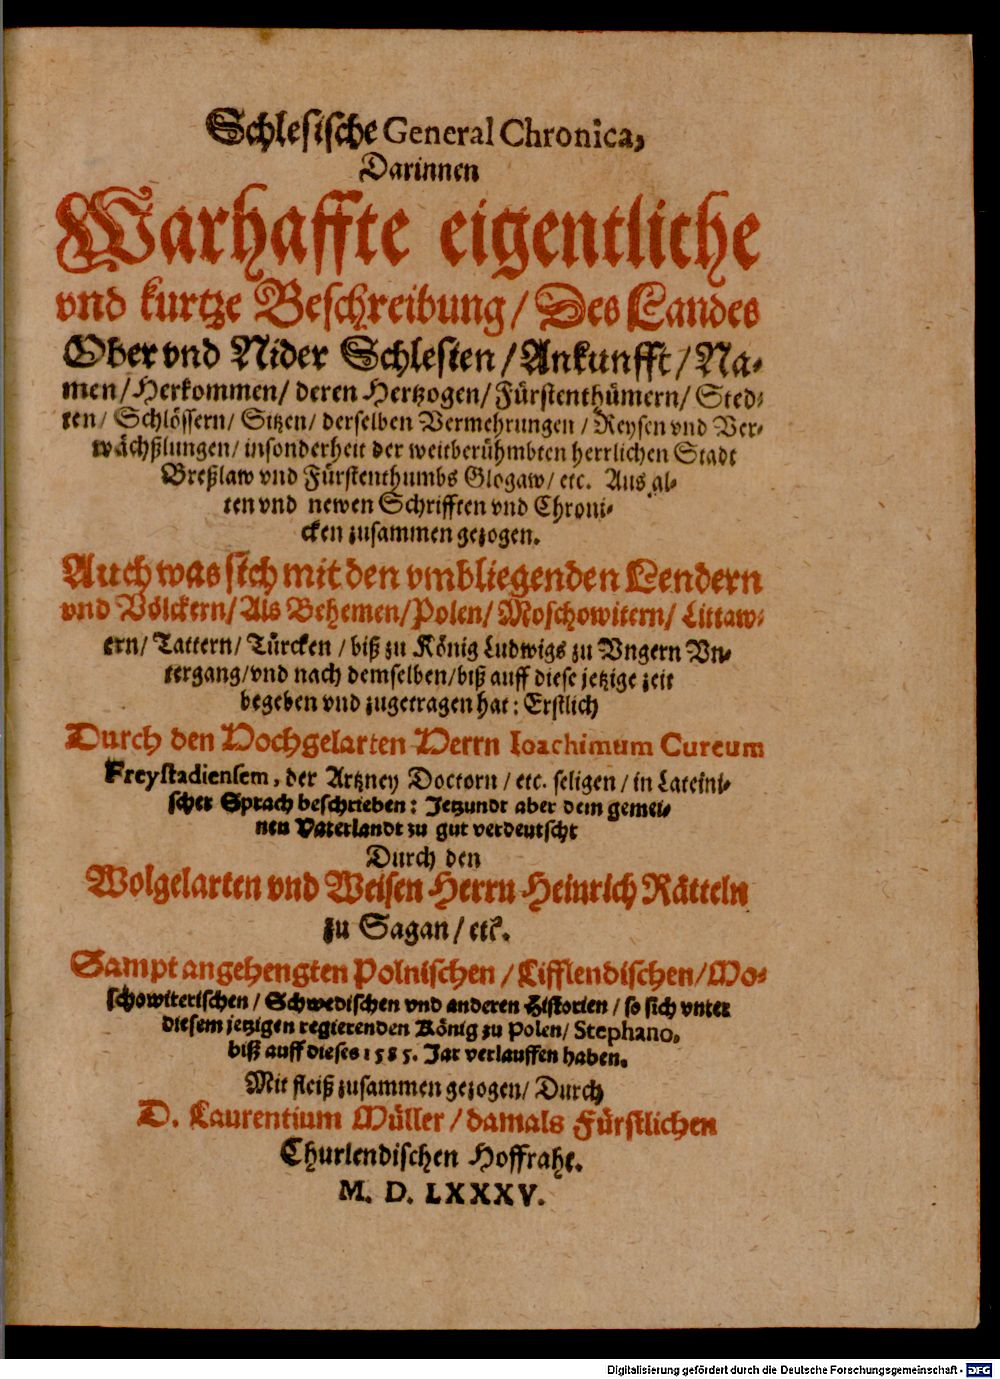 Schlesische General Chronica,
Darinnen
Warhaffte eigentliche
vnd kurtze Beschreibung/ Des Landes
Ober vnd Nider Schlesien/ Ankunfft/ Na-
men/ Herkommen/ deren Hertzogen/ Fürstenthümern/ Sted-
ten/ Schlössern/ Sitzen/ derselben Vermehrungen/ Reysen vnd Ver-
wächßlungen/ insonderheit der weitberühmbten herrlichen Stadt
Breßlaw vnd Fürstenthumbs Glogaw/ etc. Aus al-
ten vnd newen Schrifften vnd Chroni-
cken zusammen gezogen.
Auch was sich mit den vmbliegenden Lendern
vnd Völckern/ Als Behemen/ Polen/ Moschowitern/ Littaw-
ern/ Tattern/ Türcken/ biß zu König Ludwigs zu Vngern Vn-
tergang/ vnd nach demselben/ biß auff diese jetzige zeit
begeben vnd zugetragen hat: Erstlich
Durch den Hochgelarten Herrn Ioachimum Cureum
Freystadiensem, der Artzney Doctorn/ etc. seligen/ in Lateini-
scher Sprach beschrieben: Jetzundt aber dem gemei-
nen Vaterlandt zu gut verdeutscht
Durch den
Wolgelarten vnd Weisen Herrn Heinrich Rätteln
zu Sagan/ etc.
Sampt angehengten Polnischen/ Lifflendischen/ Mo-
schowiterischen/ Schwedischen vnd anderen Historien/ so sich vnter
diesem jetzigen regierenden König zu Polen/ Stephano,
biß auff dieses 1585. Jar verlauffen haben.
Mit fleiß zusammen gezogen/ Durch
D. Laurentium Müller/ damals Fürstlichen
Churlendischen Hoffraht.
M. D. LXXXV.
Digitalisierung gefördert durch die Deutsche Forschungsgemeinschaft - DFG